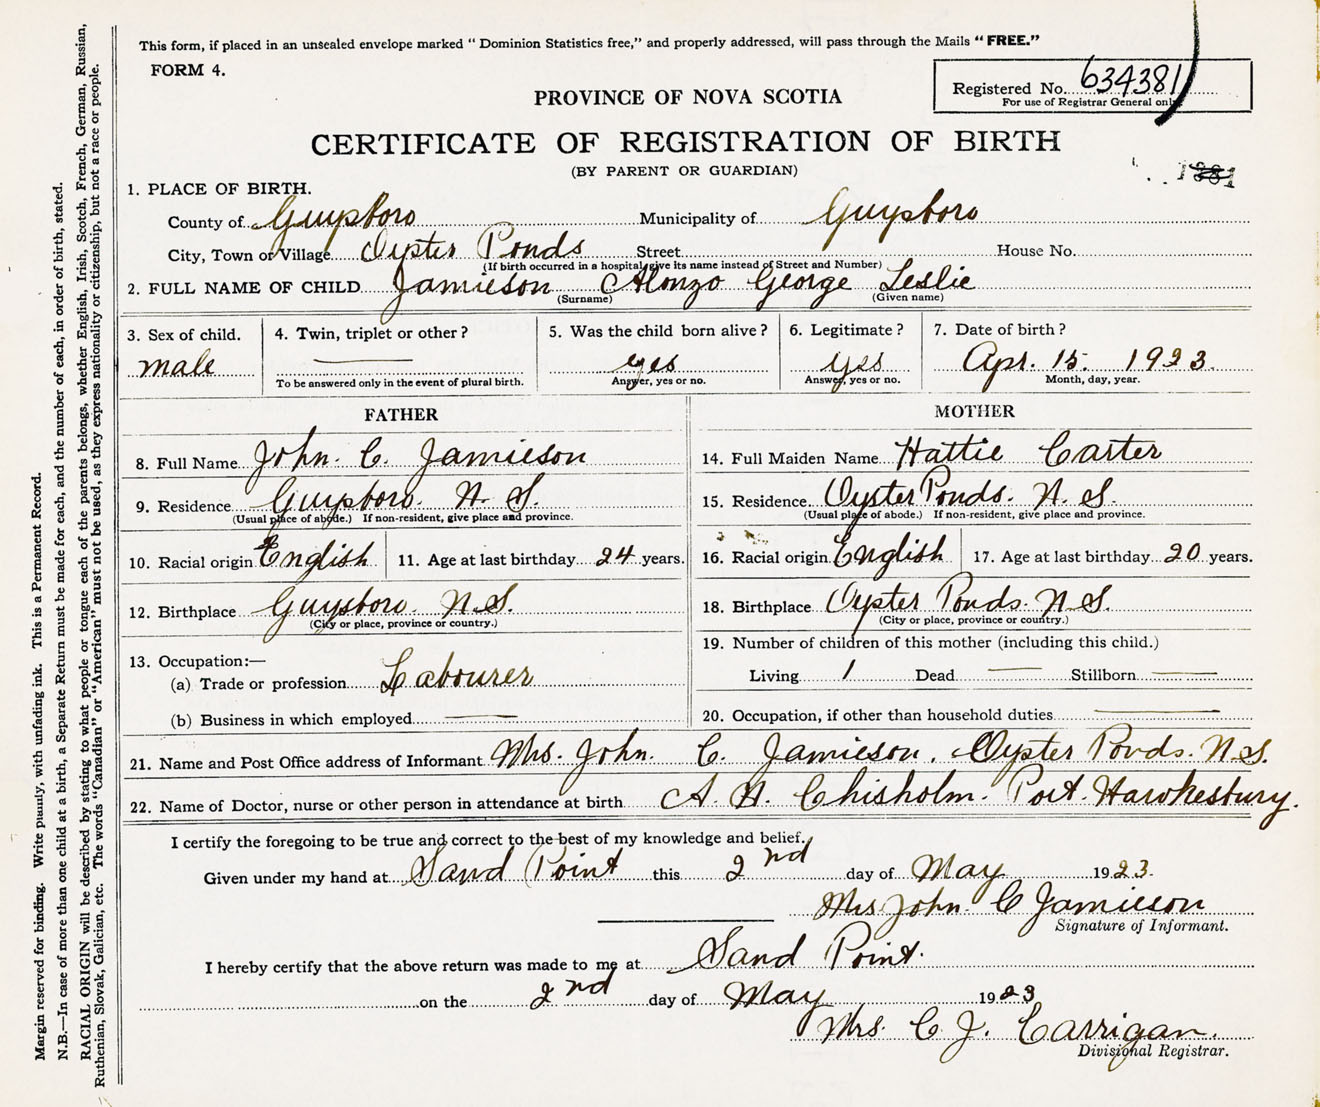 This form, if placed in an unsealed envelope marked “ Dominion Statistics free,” and properly addressed, will pass through the Mails “ FREE.”
FORM 4.
Registered No. 634381
For use of Registrar General only
PROVINCE OF NOVA SCOTIA
CERTIFICATE OF REGISTRATION OF BIRTH
(BY PARENT OR GUARDIAN)
1. PLACE OF BIRTH.
County of Guysboro Municipality of Guysboro
City, Town or Village Oyster Ponds Street House No.
(If birth occurred in a hospital, give its name instead of Street and Number)
2. FULL NAME OF CHILD Jamieson Alonzo George Leslie
(Surname) (Given name)
3. Sex of child. 4. Twin, triplet or other ? 5. Was the child born alive ? 6. Legitimate ? 7. Date of birth ?
male yes yes Apr. 15. 1923.
To be answered only in the event of plural birth. Answer, yes or no. Answer, yes or no. Month, day, year.
FATHER MOTHER
8. Full Name John. C. Jamieson 14. Full Maiden Name Hattie Carter
9. Residence Guysboro. N. S. 15. Residence Oyster Ponds. N. S.
(Usual place of abode.) If non-resident, give place and province. (Usual place of abode.) If non-resident, give place and province.
10. Racial origin English 11. Age at last birthday 24 years. 16. Racial origin English 17. Age at last birthday 20 years.
12. Birthplace Guysboro. N.S. 18. Birthplace Oyster Ponds. N.S.
(City or place, province or country.) (City or place, province or country.)
19. Number of children of this mother (including this child.)
13. Occupation:—
(a) Trade or profession Labourer Living 1 Dead Stillborn
(b) Business in which employed 20. Occupation, if other than household duties
21. Name and Post Office address of Informant Mrs. John. C. Jamieson, Oyster Ponds. N.S.
22. Name of Doctor, nurse or other person in attendance at birth A. N. Chisholm. Port. Hawkesbury.
I certify the foregoing to be true and correct to the best of my knowledge and belief.
Given under my hand at Sand Point this 2nd day of May 1923.
Mrs John. C Jamieson
Signature of Informant.
I hereby certify that the above return was made to me at Sand Point.
on the 2nd day of May 1923
Mrs. C. J. Carrigan.
Divisional Registrar.
Margin reserved for binding. Write plainly, with unfading ink. This is a Permanent Record.
N.B.—In case of more than one child at a birth, a Separate Return must be made for each, and the number of each, in order of birth, stated.
RACIAL ORIGIN will be described by stating to what people or tongue each of the parents belongs, whether English, Irish, Scotch, French, German, Russian,
Ruthenian, Slovak, Galician, etc. The words “Canadian” or “American” must not be used, as they express nationality or citizenship, but not a race or people.